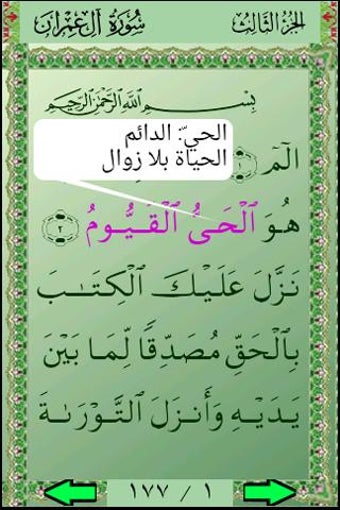 سُورَةُ آلِ عِمْرَانَ الجُزْءُ الثَّالِثُ
بِسْمِ اللَّهِ الرَّحْمَٰنِ الرَّحِيمِ
الحيّ: الدائم
الحياة بلا زوال
الٓمٓ
هُوَ ٱلْحَىُّ ٱلْقَيُّومُ ٢
نَزَّلَ عَلَيْكَ ٱلْكِتَٰبَ
بِٱلْحَقِّ مُصَدِّقًا لِّمَا بَيْنَ
يَدَيْهِ وَأَنزَلَ ٱلتَّوْرَىٰةَ
١٧٧ / ١